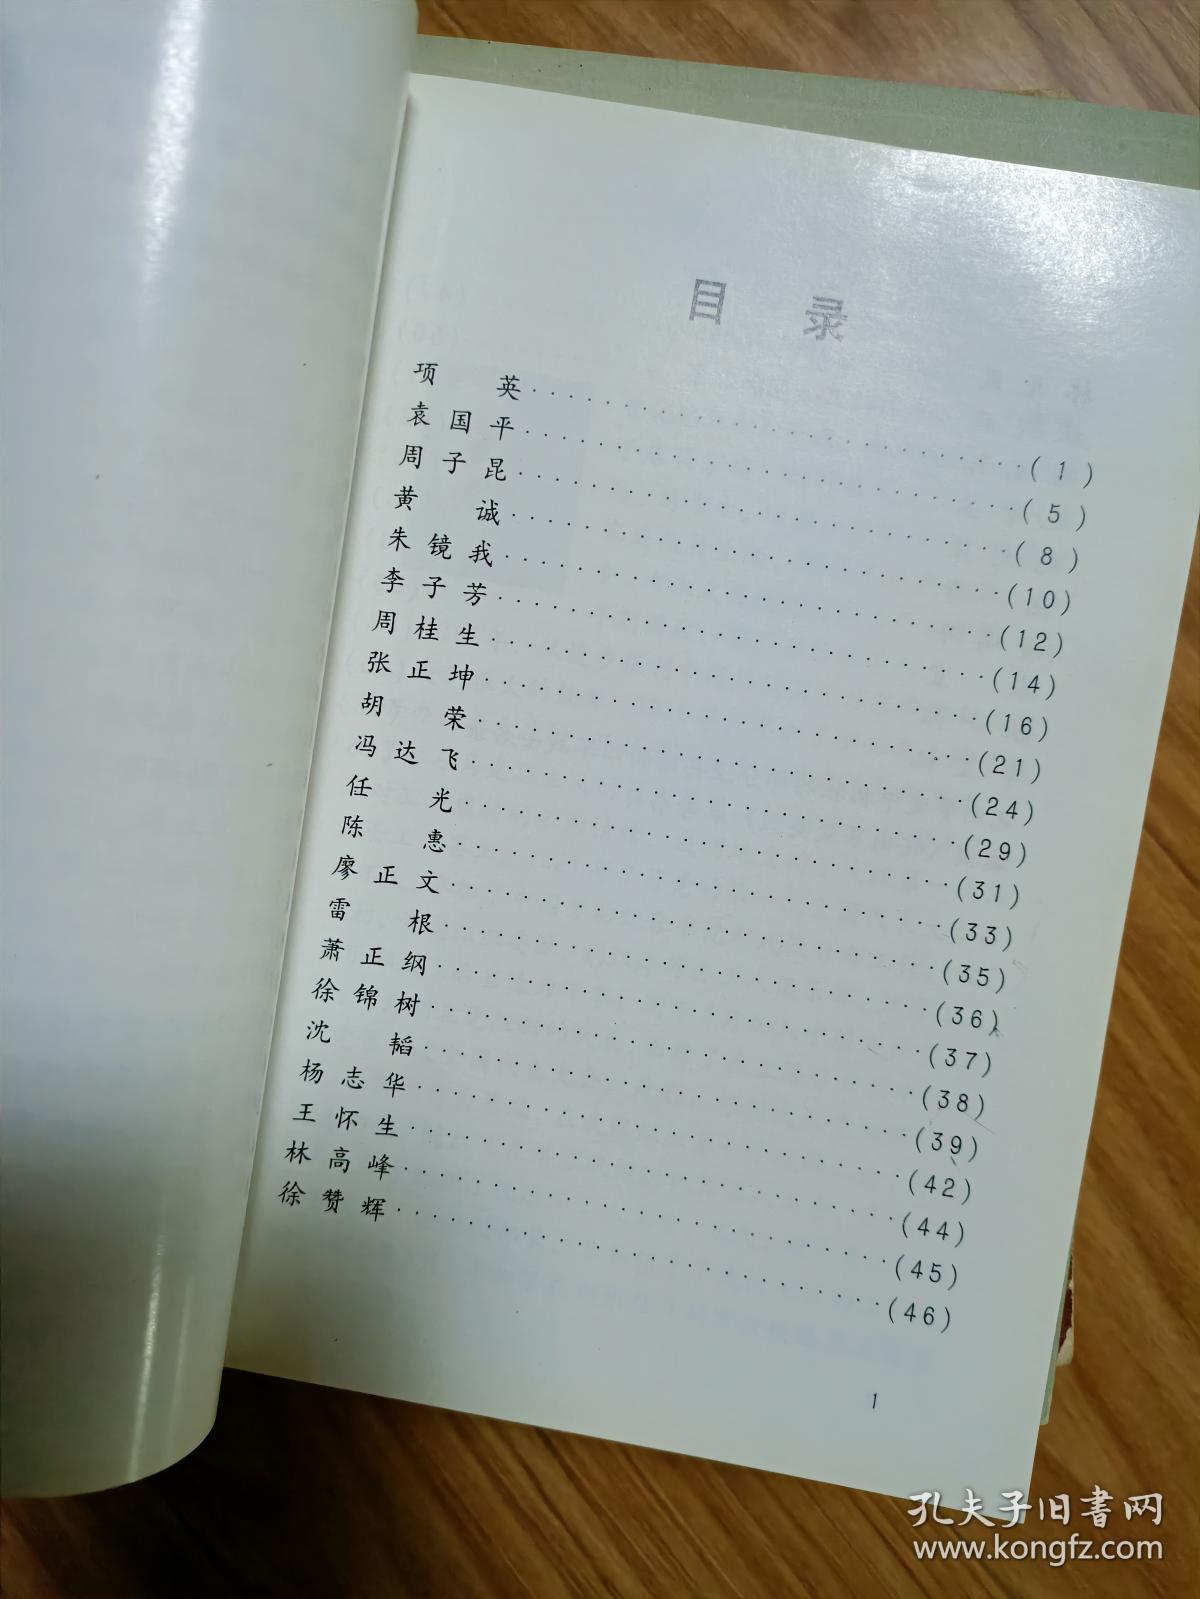 目 录
项 英 (1)
袁国平 (5)
周子昆 (8)
黄 诚 (10)
朱镜我 (12)
李子芳 (14)
周桂生 (16)
张正坤 (21)
胡 荣 (24)
冯达飞 (29)
任 光 (31)
陈 惠 (33)
廖正文 (35)
雷 根 (36)
萧正纲 (37)
徐锦树 (38)
沈 韬 (39)
杨志华 (42)
王怀生 (44)
林高峰 (45)
徐赞辉 (46)
1
孔夫子旧书网
www.kongfz.com